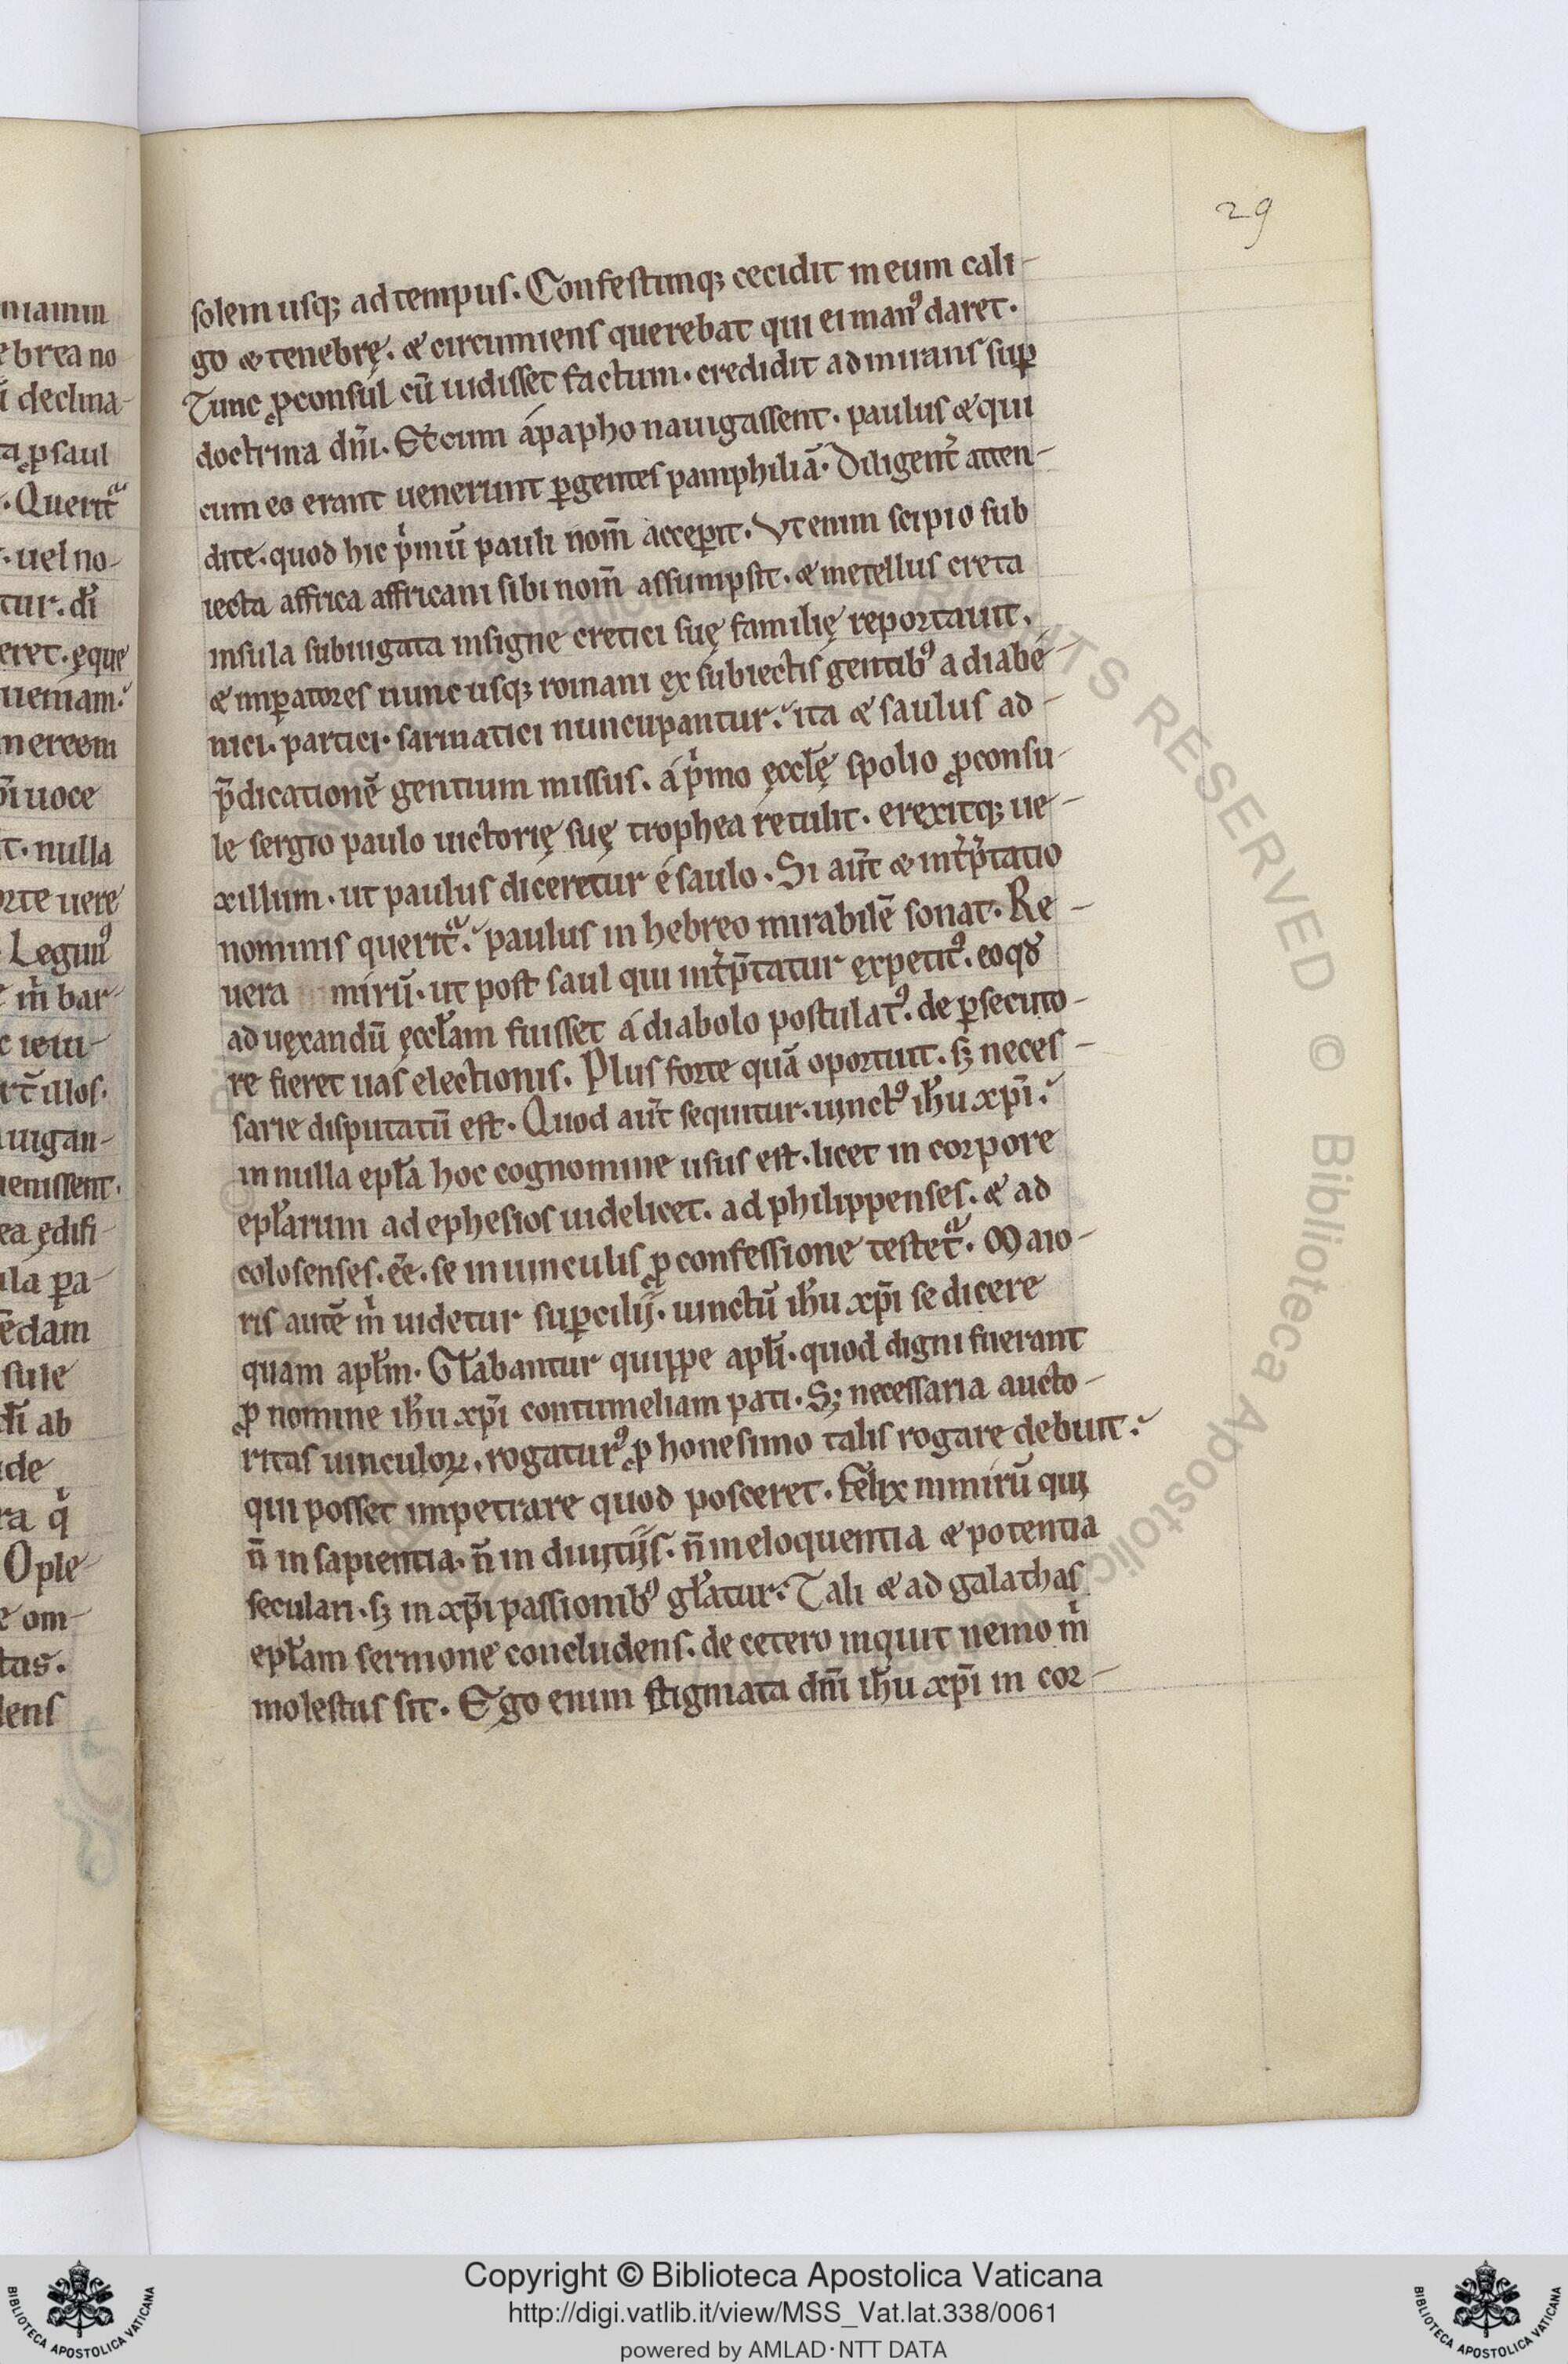 29
solem usq; ad tempus. Confestimq; cecidit in eum cali-
go & tenebrę. & circumiens querebat qui ei manꝰ daret.
Tunc ꝓconsul cū uidisset factum. credidit admirans suꝑ
doctrina dn̄i. Et cum á papho nauigassent. paulus & qui
cum eo erant uenerunt ꝑgentes pamphiliā. Diligent̄ atten-
dite. quod hic pⁱmū pauli nom̄ acceꝑit. Vt enim scipio sub
iecta affrica affricani sibi nom̄ assumpsit. & metellus creta
insula subiugata insigne cretici suę familię reportauit.
& imꝑatores nunc usq; romani ex subiectis gentibꝰ adiabe-
nici. partici. sarmatici nuncupantur. ita & saulus ad
p̄dicationē gentium missus. á pⁱmo ęccl̄ę spolio ꝓconsu-
le sergio paulo uictorię suę trophea retulit. erexitq; ue-
xillum. ut paulus diceretur é saulo. Si aūt & int̄p̄tatio
nominis querit̄. paulus in hebreo mirabilē sonat. Re-
uera mirū. ut post saul qui int̄p̄tatur expetitꝰ. eo qđ
ad uexandū ęccl̄am fuisset á diabolo postulatꝰ. de ꝑsecuto-
re fieret uas electionis. Plus forte quā oportuit. sꝫ neces-
sarie disputatū est. Quod aūt sequitur. uinctꝰ ih̄u xp̄i.
in nulla epl̄a hoc cognomine usus est. licet in corpore
epl̄arum ad ephesios uidelicet. ad philippenses. & ad
colosenses. eē. se in uinculis ꝓ confessione testet̄. Maio-
ris autē mⁱ uidetur suꝑcilij. uinctū ih̄u xp̄i se dicere
quam apl̄m. Gl̄abantur quippe apl̄i. quod digni fuerant
ꝓ nomine ih̄u xp̄i contumeliam pati. Sꝫ necessaria aucto-
ritas uinculoꝝ. rogaturꝰ ꝓ honesimo talis rogare debuit.
qui posset impetrare quod posceret. Felix nimirū qui
n̄ in sapientia. n̄ in diuitijs. n̄ in eloquentia & potentia
seculari. sꝫ in xp̄i passionibꝰ gl̄atur. Tali & ad galathas
epl̄am sermone concludens. de cetero inquit nemo mⁱ
molestus sit. Ego enim stigmata dn̄i ih̄u xp̄i in cor-
Copyright © Biblioteca Apostolica Vaticana
http://digi.vatlib.it/view/MSS_Vat.lat.338/0061
powered by AMLAD·NTT DATA